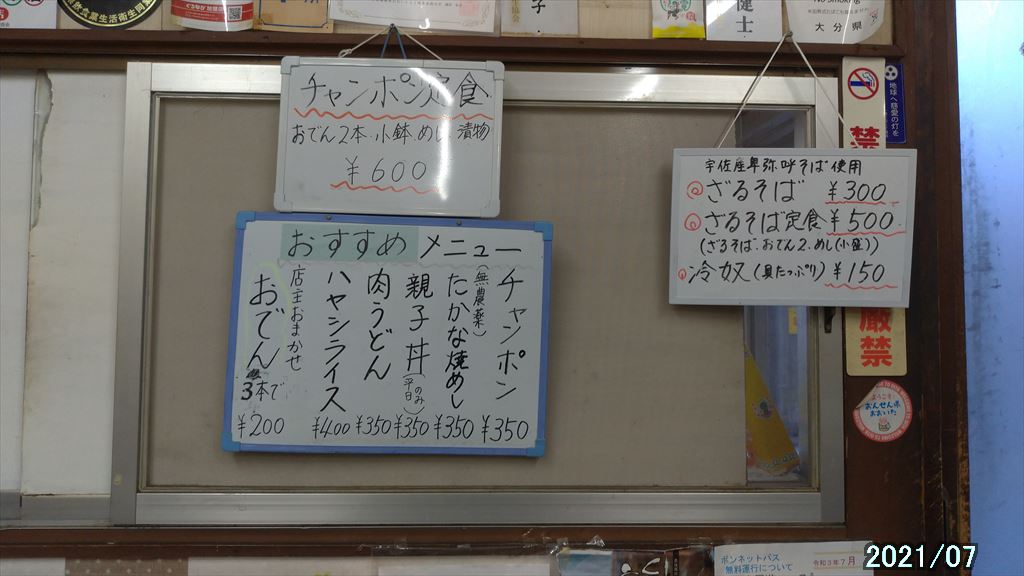 チャンポン定食
おでん2本.小鉢.めし.漬物
¥600
おすすめ メニュー
チャンポン ¥350
(無農薬)
たかな焼めし ¥350
親子丼(平日のみ) ¥350
肉うどん ¥350
ハヤシライス ¥400
店主おまかせ
おでん 3本で ¥200
宇佐産卑弥呼そば使用
ざるそば ¥300
ざるそば定食 ¥500
(ざるそば.おでん2.めし(小盛))
冷奴(具たっぷり) ¥150
健士
大分県
地球へ慈愛の灯を
禁
厳禁
ようこそ
おんせん県
おおいた
ボンネットバス
無料運行について
令和3年7月
2021/07